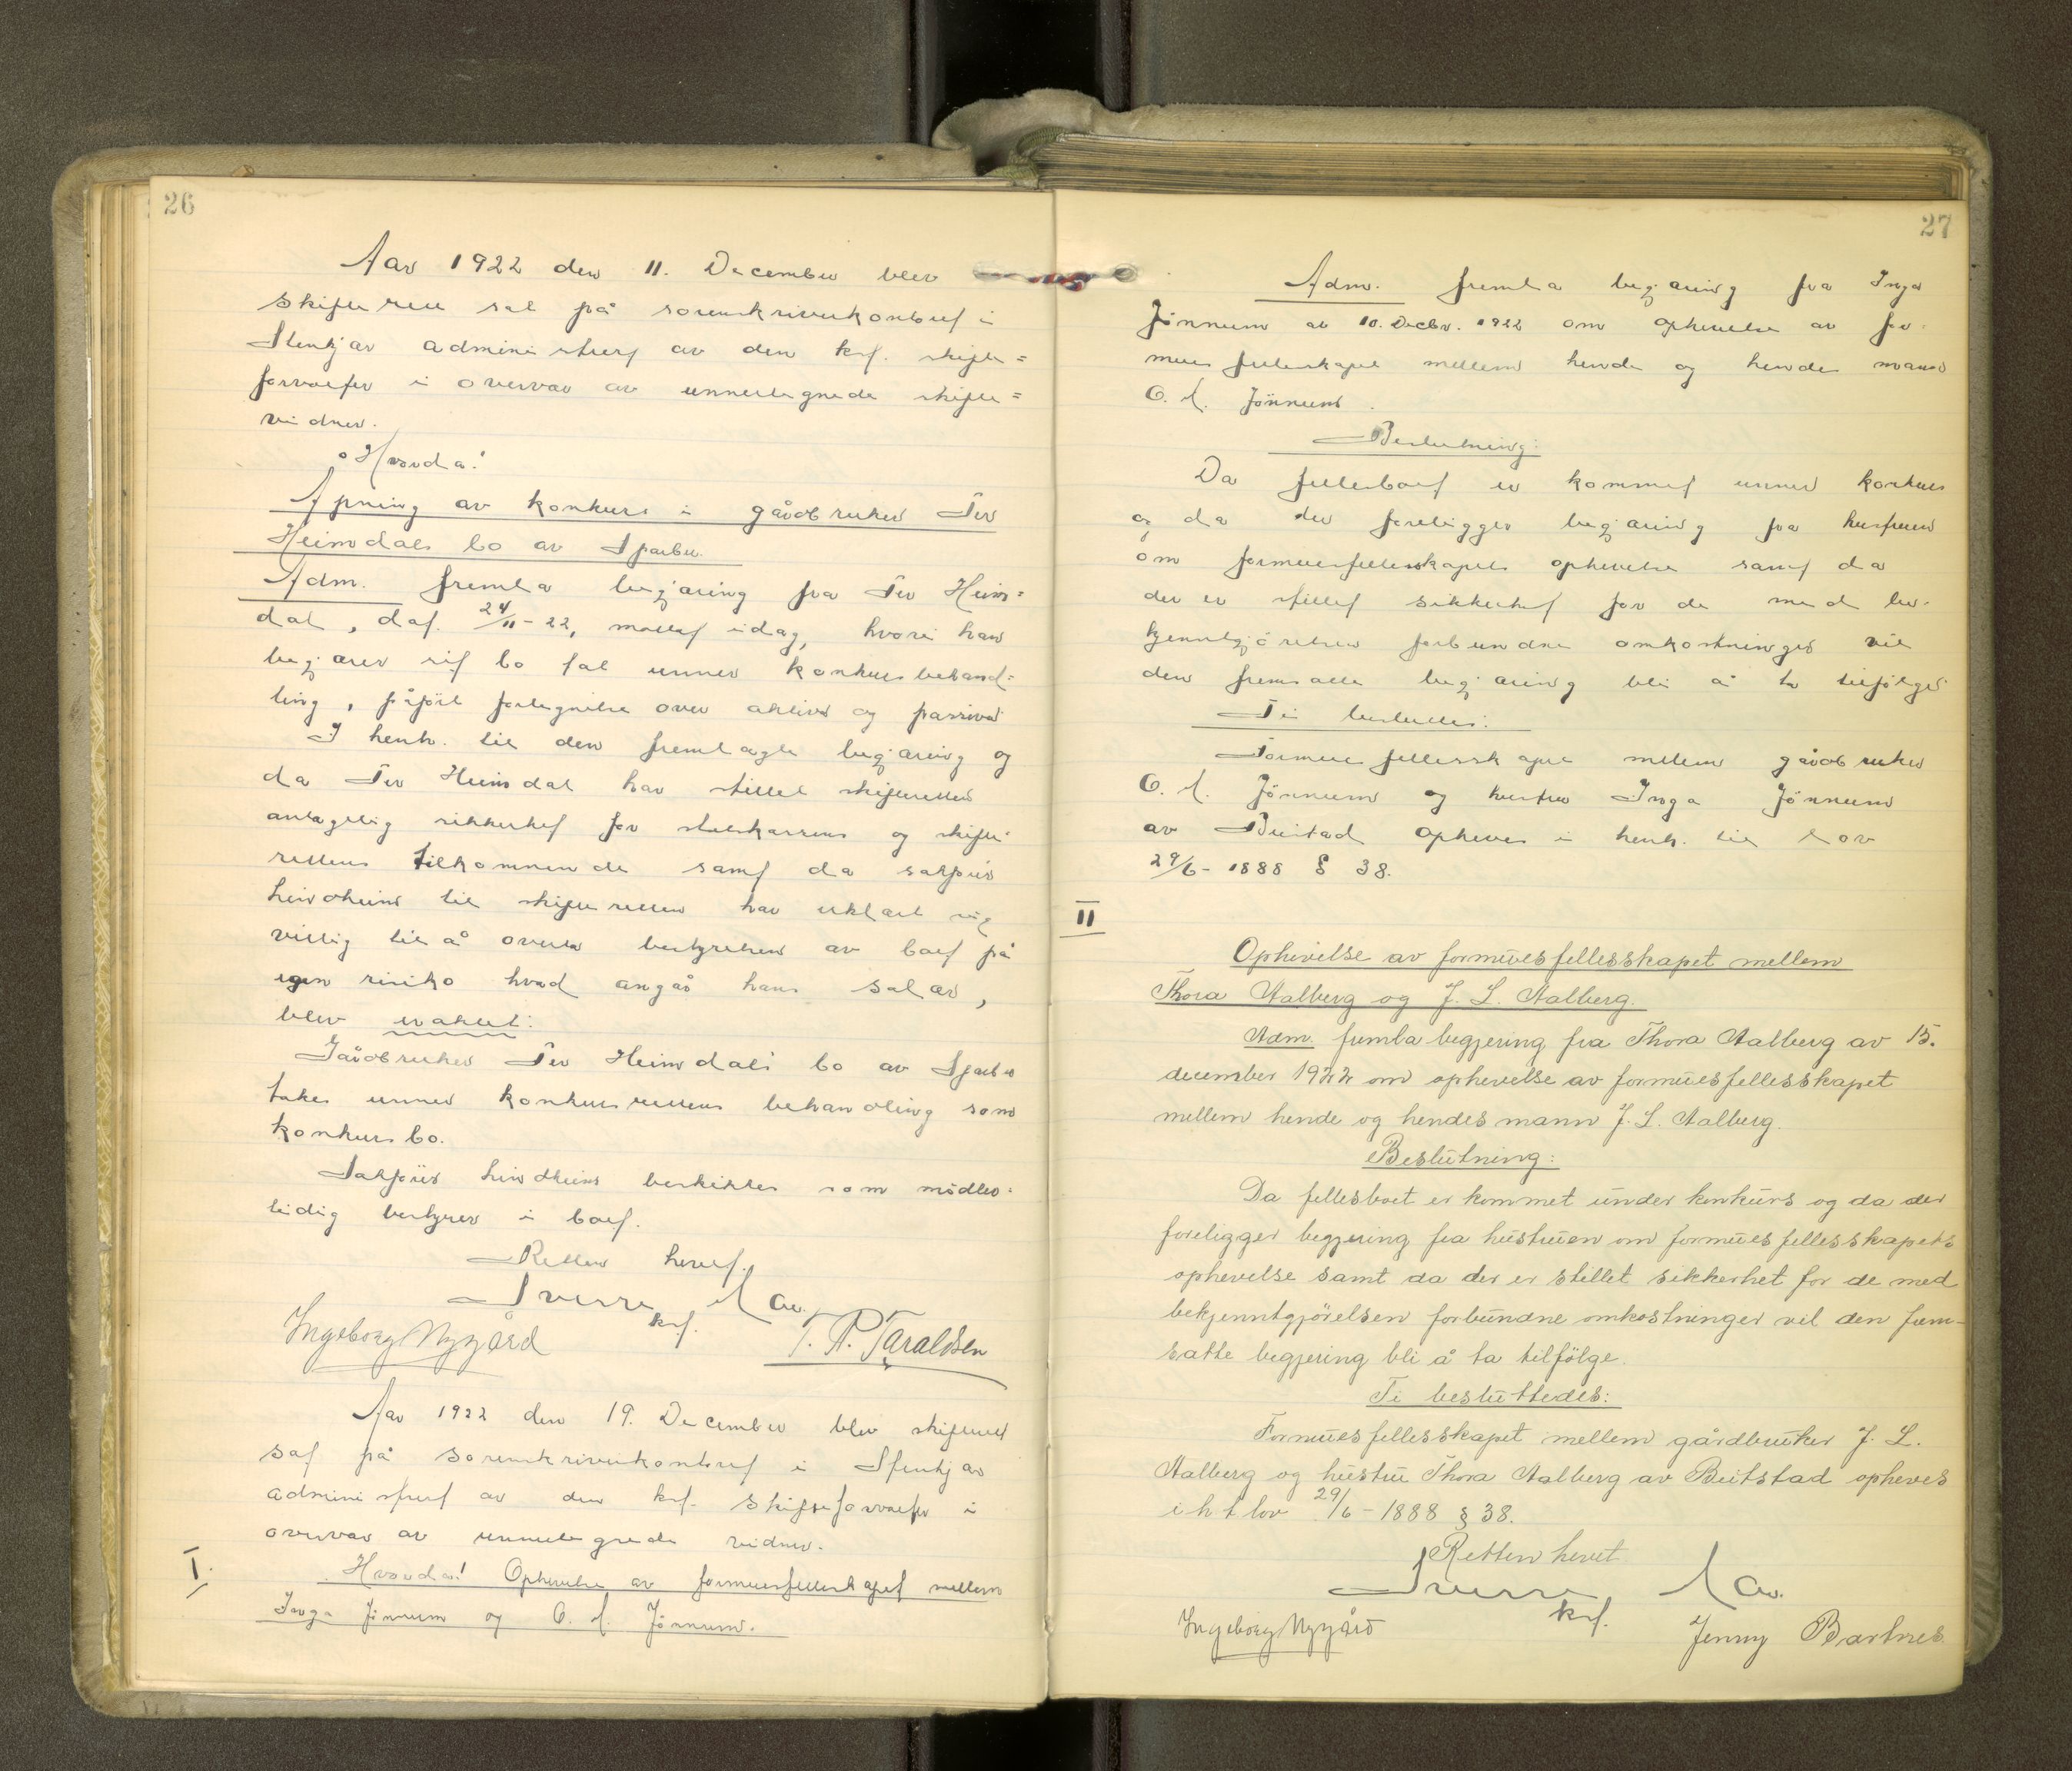 26
Aar 1922 den 11. December blev
skifteret sat på sorenskriverkontoret i
Stenkjær administrert av den kst. skifte=
forvalter i overvær av unnertegnede skifte=
vidner.
Hvorda!
Åpning av konkurs i gårdbruker Per
Heimdals bo av Sparbu.
Adm. fremla begjæring fra Per Heim=
dal, dat. 24/11-22, mottat idag, hvori han
begjærer sit bo tat unner konkursbehand=
ling, påført fortegnelse over aktiva og passiva
I henh. til den fremlagte begjæring og
da Per Heimdal har stillet skifteretten
antagelig sikkerhet for statskassens og skifte=
rettens tilkommende samt da sakfører
Lindheim til skifteretten har erklært sig
villig til å overta bestyrelsen av boet på
egen risiko hvad angår hans salær,
blev eraktet:
Gårdbruker Per Heimdals bo av Sparbu
takes unner konkursrettens behandling som
konkursbo.
Sakfører Lindheim beskikkes som midler=
tidig bestyrer i boet.
Retten hevet.
Sverre
kst.
Ingeborg Nygård
T. P. Taraldsen
Aar 1922 den 19. December blev skifteret
sat på sorenskriverkontoret i Stenkjær
administrert av den kst. skifteforvalter i
overvær av unnertegnede vidner.
I.
Hvorda! Ophevelse av formuesfellesskapet mellem
Inga Jönnum og O. A. Jönnum.
27
Adm. fremla begjæring fra Inga
Jönnum av 10. Decbr. 1922 om ophevelse av for=
muesfellesskapet mellem hende og hendes mand
O. A. Jönnum.
Beslutning:
Da fellesboet er kommet unner konkurs
og da der foreligger begjæring fra hustruen
om formuesfellesskapets ophevelse samt da
der er stillet sikkerhet for de med be=
kjenntgjörelsen forbundne omkostninger vil
den fremsatte begjæring bli å ta tilfölge.
Ti besluttes:
Formuesfellesskapet mellem gårdbruker
O. A. Jönnum og hustru Inga Jönnum
av Beitstad opheves i henh. til lov
29/6- 1888 § 38.
II
Ophevelse av formuesfellesskapet mellem
Thora Aalberg og J. L. Aalberg.
Adm. fremla begjering fra Thora Aalberg av 15.
december 1922 om ophevelse av formuesfellesskapet
mellem hende og hendes mann J. L. Aalberg.
Beslutning:
Da fellesboet er kommet under konkurs og da der
foreligger begjering fra hustruen om formuesfellesskapets
ophevelse samt da der er stillet sikkerhet for de med
bekjenntgjörelsen forbundne omkostninger vil den frem-
satte begjering bli å ta tilfölge.
Ti besluttedes:
Formuesfellesskapet mellem gårdbruker J. L.
Aalberg og hustru Thora Aalberg av Beitstad opheves
i h t lov 29/6 - 1888 § 38.
Retten hevet
Sverre
kst.
Ingeborg Nygård
Jenny Bartnes